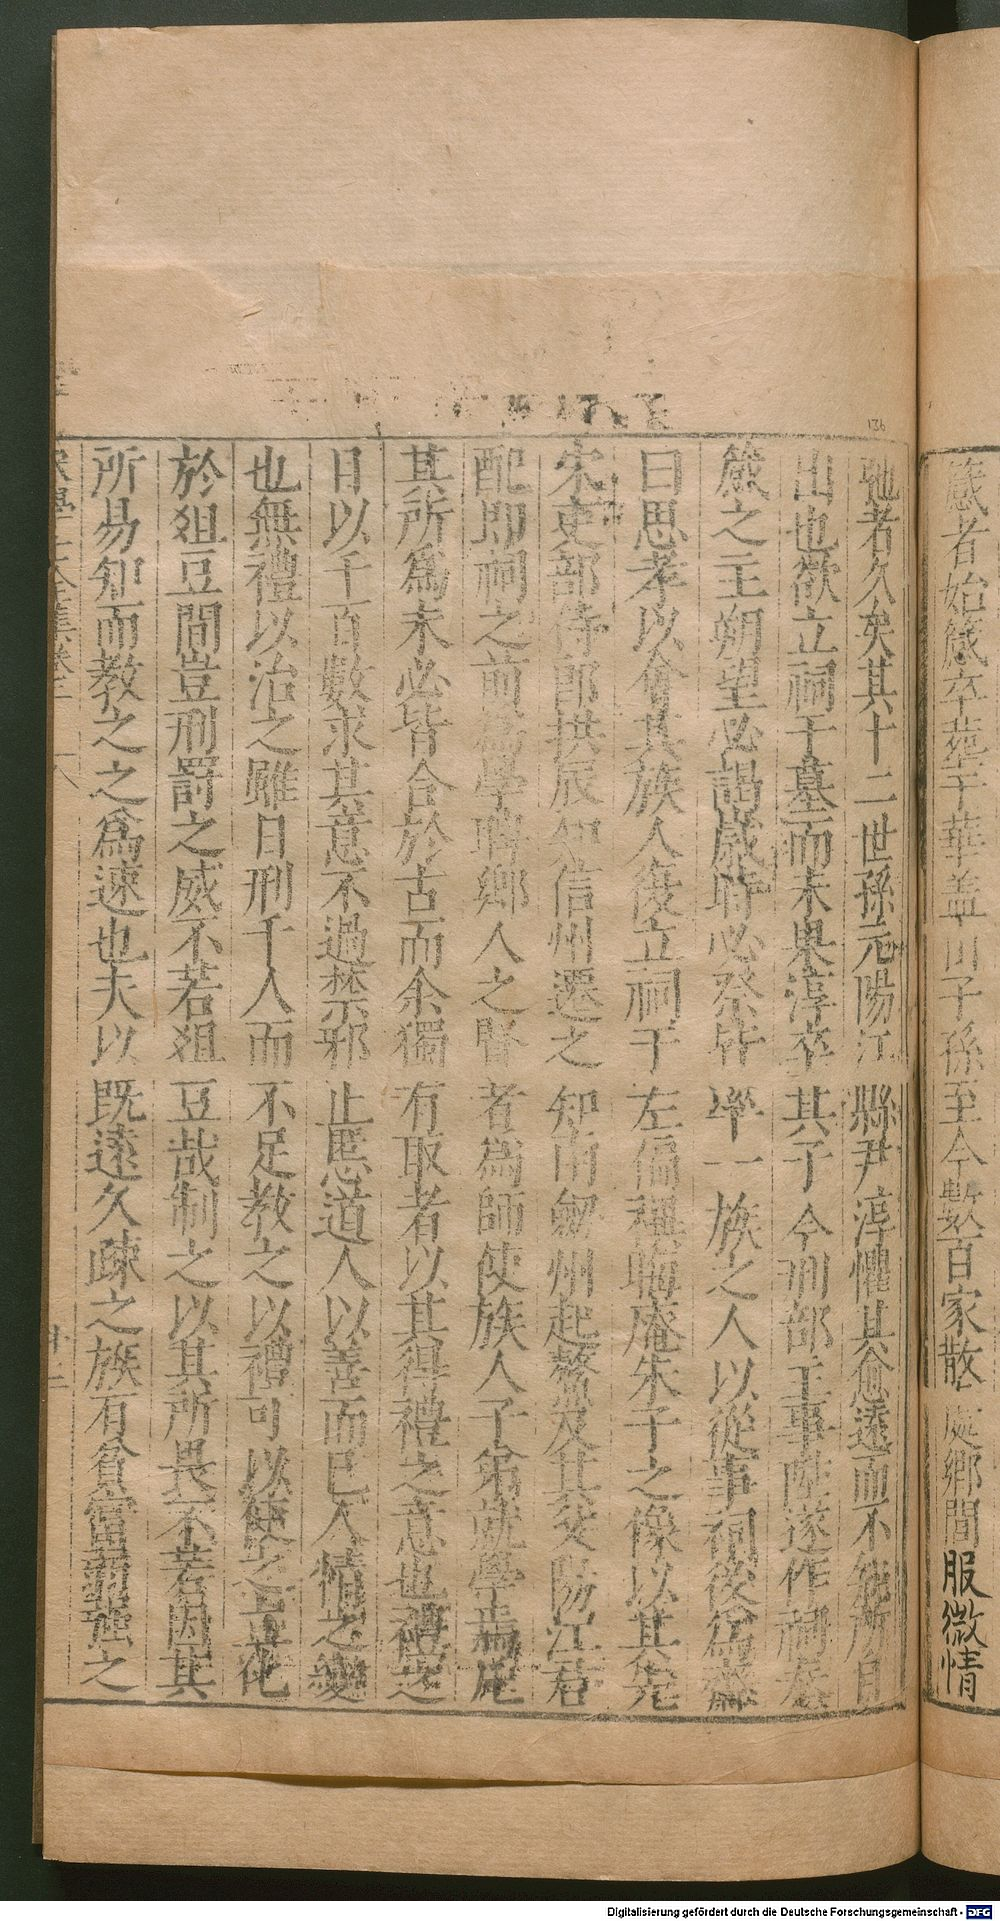 感者始箴卒葬于華盖山子孫至今數百家散處鄉閭服微情
弛者久矣其十二世孫元陽江縣尹淳懼其愈遠而不知所自
出也欲立祠于墓而未果淳卒其子今刑部主事陞遂作祠奉
箴之主朔望必謁歲時必祭皆舉一族之人以從事祠後爲齋
曰思孝以會其族人復立祠于左偏禋晦庵朱子之像以其先
宋吏部侍郎拱辰知信州遷之知南劒州起鰲及其父陽江君
配即祠之前爲學聘鄉人之賢者爲師使族人子弟就學焉尾
其所爲未必皆合於古而余獨有取者以其得禮之意也禮之
目以千百數求其意不過禁邪止慝道人以善而已人情之變
也無禮以治之雖日刑千人而不足教之以禮可以使之立化
於俎豆間豈刑罰之威不若俎豆哉制之以其所畏不若因其
所易知而教之之爲速也夫以既遠久疎之族有貧富弱強之
136
Digitalisierung gefördert durch die Deutsche Forschungsgemeinschaft - DFG